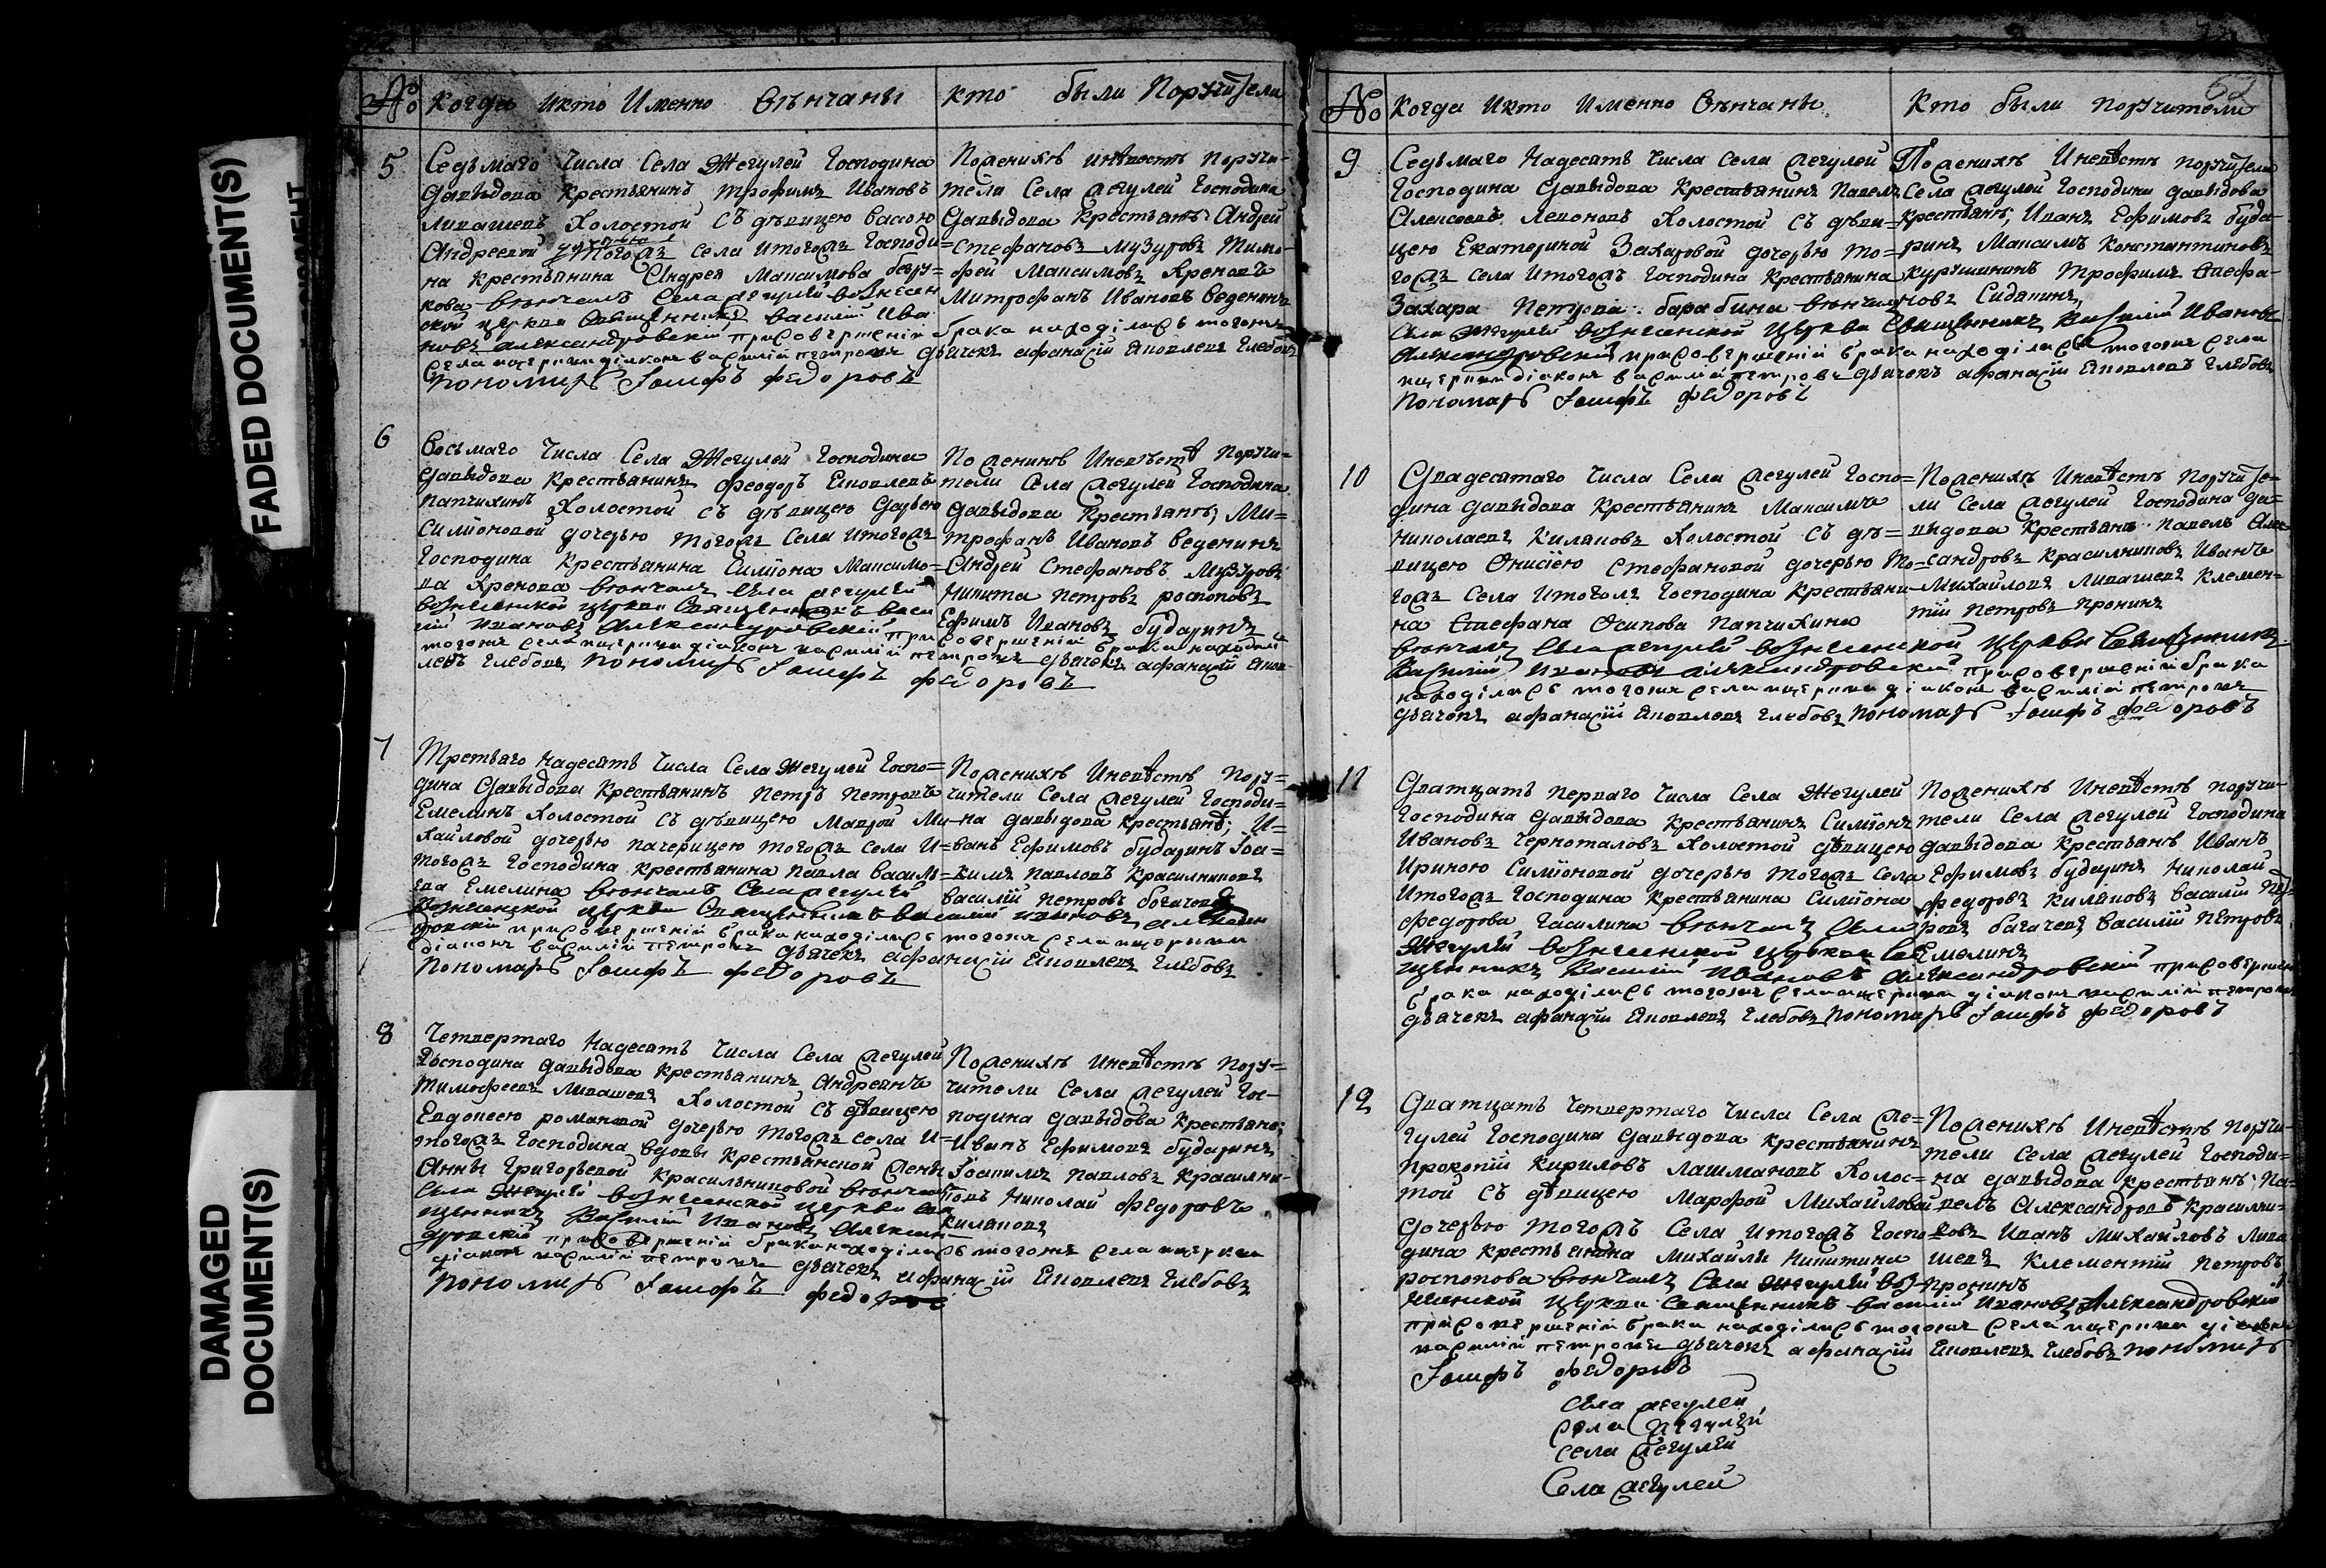 FADED DOCUMENT(S)
DAMAGED
DOCUMENT(S)
№ Когда Икто Именно Вѣнчаны
кто были Поручители
5
Седьмаго Числа Села Жегулей Господина
Давыдова Крестьянинъ Трофимъ Ивановъ
Ливашевъ Холостой Съ дѣвицею Васою
Андреевой дочерью тогожъ села Итогожъ Господи=
на крестьянина Андрея Максимова безру=
кова вѣнчалъ Села жегулей вознесен
ской церкви Священникъ Василий Ива
новъ александровский присовѣршении брака находилисъ тогожъ
села ицеркви диаконъ василий петровъ дьячекъ афанасий Яковлевъ Глебовъ
Пономаръ Iосифъ федоровъ
Поженихѣ иневѣстѣ поручи-
тели Села жегулей Господина
Давыдова крестьянѣ: Андрей
Стефановъ музуровъ Тимо-
фей Максимовъ Хреновъ
Митрофанъ Ивановъ Веденинъ
6
Восьмаго Числа Села Жегулей Господина
Давыдова Крестьянинъ Феодоръ Яковлевъ
Папчихинъ Холостой Съ дѣвицею Дарьею
Симионовой дочерью тогожъ Села итогожъ
Господина Крестьянина Симиона Максимо-
ва Хренова вѣнчалъ Села жегулей
вознесенской церкви Священникъ Васи
лий Ивановъ Александровский присовершении брака находил
тогожъ села ицеркви диаконъ василий петровъ дьячекъ афанасий Яков-
левъ Глебовъ Пономаръ Iосифъ федоровъ
Поженихѣ Иневѣстѣ Поручи=
тели Села жегулей Господина
Давыдова Крестьянѣ; Ми=
трофанъ Ивановъ Веденинъ
Андрей Стефановъ Музуровъ
Никита Петровъ роспоповъ
Ефимъ Ивановъ бударинъ
7
Третьяго Надесять Числа Села Жегулей Госпо=
дина Давыдова Крестьянинъ Петръ Петровъ
Емелинъ Холостой Съ дѣвицею Маврой Ми-
хайловой дочерью пачерицею тогожъ села И=
тогожъ Господина крестьянина Павла Василь=
ева Емелина вѣнчалъ Села жегулей
Вознесенской церкви Священникъ Василий ивановъ алексан
дровский присовершении брака находилисъ тогожъ села ицеркви
диаконъ василий петровъ дьячекъ афанасий Яковлевъ Глебовъ
Пономаръ Iосифъ федоровъ
Поженихѣ Иневѣстѣ Пору=
чители Села жегулей Господи=
на давыдова крестьянѣ; И=
ванъ Ефимовъ бударинъ Iоа=
кимъ Павловъ Красилниковъ
Василий Петровъ богачевъ
8
Четвертаго Надесять Числа Села жегулей
Господина давыдова крестьянинъ Андреянъ
Тимофеевъ Ливашевъ Холостой Съ дѣвицею
Евдокеею романовой дочерью тогожъ села И=
тогожъ Господина вдовы крестьянской жены
Анны Григорьевой Красильниковой вѣнчалъ
Села Жегулей вознесенской церкви Свя
щенникъ Василий Ивановъ Алексан
дровский присовершении брака находилисъ тогожъ села ицеркви
диаконъ василий петровъ дьячекъ афанасий Яковлевъ Глебовъ
Пономаръ Iосифъ федоровъ
Поженихѣ иневѣстѣ Пору=
чители Села жегулей Гос-
подина давыдова Крестьянѣ;
Иванъ Ефимовъ бударинъ
Iоакимъ Павловъ Красилни-
ковъ Николай Федоровъ
Киляковъ
№ Когда Икто Именно Вѣнчаны
Кто были поручители
9
Седьмаго Надесять Числа Села жегулей
Господина Давыдова Крестьянинъ Павелъ
Алексеевъ Левоновъ Холостой съ дѣви=
цею Екатериной Захаровой дочерью то=
гожъ села Итогожъ Господина крестьянина
Захара Петрова барабина вѣнчалъ
Села Жегулей вознесенской Церкви Священникъ Василий Ивановъ
Александровский присовершении брака находилисъ тогожъ села
ицеркви диаконъ василий петровъ дьячекъ афанасий Яковлевъ Глебовъ
Пономаръ Iосифъ федоровъ
Поженихѣ Иневѣстѣ поручители
Села жегулей Господина давыдова
крестьянѣ; Иванъ Ефимовъ буда-
ринъ Максимъ Константиновъ
курушинъ Трофимъ Стефа-
новъ Сидякинъ
10
Двадесятаго Числа Села жегулей Госпо=
дина давыдова крестьянинъ Максимъ
Николаевъ Киляковъ Холостой Съ дѣ=
вицею Онисиею Стефановой дочерью то=
гожъ Села Итогожъ Господина Крестьяни-
на Стефана Осипова Папчихина
вѣнчалъ Села жегулей вознесенской Церкви Священникъ
Василий Ивановъ александровский присовершении брака
находилисъ тогожъ села ицеркви диаконъ василий петровъ
дьячекъ афанасий Яковлевъ Глебовъ Пономаръ Iосифъ федоровъ
Поженихѣ Иневѣстѣ Поручите-
ли Села жегулей Господина да=
выдова Крестьянѣ: Павелъ Алек-
сандровъ красилниковъ Иванъ
Михайловъ Ливашевъ Клемен=
тий Петровъ Пронинъ
11
Дватцать перваго Числа Села Жегулей
Господина давыдова крестьянинъ Симионъ
Ивановъ Черноталовъ Холостой дѣвицею
Ириною Симионовой дочерью тогожъ села
Итогожъ Господина Крестьянина Симиона
федорова Гасилина вѣнчалъ Села
Жегулей вознесенской церкви Свя
щенникъ Василий Ивановъ александровский присовершен
брака находилисъ тогожъ села ицеркви диаконъ василий петровъ
дьячекъ афанасий Яковлевъ Глебовъ Пономаръ Iосифъ федоровъ
Поженихѣ Иневѣстѣ поручи-
тели Села жегулей Господина
давыдова крестьянѣ Иванъ
Ефимовъ бударинъ Николай
федоровъ Киляковъ Василий Пет
ровъ багачевъ Василий Петровъ
Емелинъ
12
Дватцать Четвертаго Числа Села же-
гулей Господина Давыдова крестьянинъ
Прокопий Кириловъ лашмановъ Холос=
той Съ дѣвицею Марфой Михайловой
дочерью тогожъ Села Итогожъ Госпо
дина крестьянина Михайлы Никитина
роспопова вѣнчалъ Села жегулей воз-
несенской Церкви священникъ василий Ивановъ Александровский
присовершении брака находилисъ тогожъ села ицеркви диаконъ
василий петровъ дьячекъ афанасий Яковлевъ Глебовъ пономаръ
Iосифъ федоровъ
Поженихѣ Иневѣстѣ поручи-
тели села жегулей Господи=
на давыдова крестьянѣ: Па=
велъ Александровъ Красилни=
ковъ Иванъ Михайловъ Лива
шевъ Клементий Петровъ
Пронинъ
села жегулей
села жегулей
села жегулей
Села жегулей